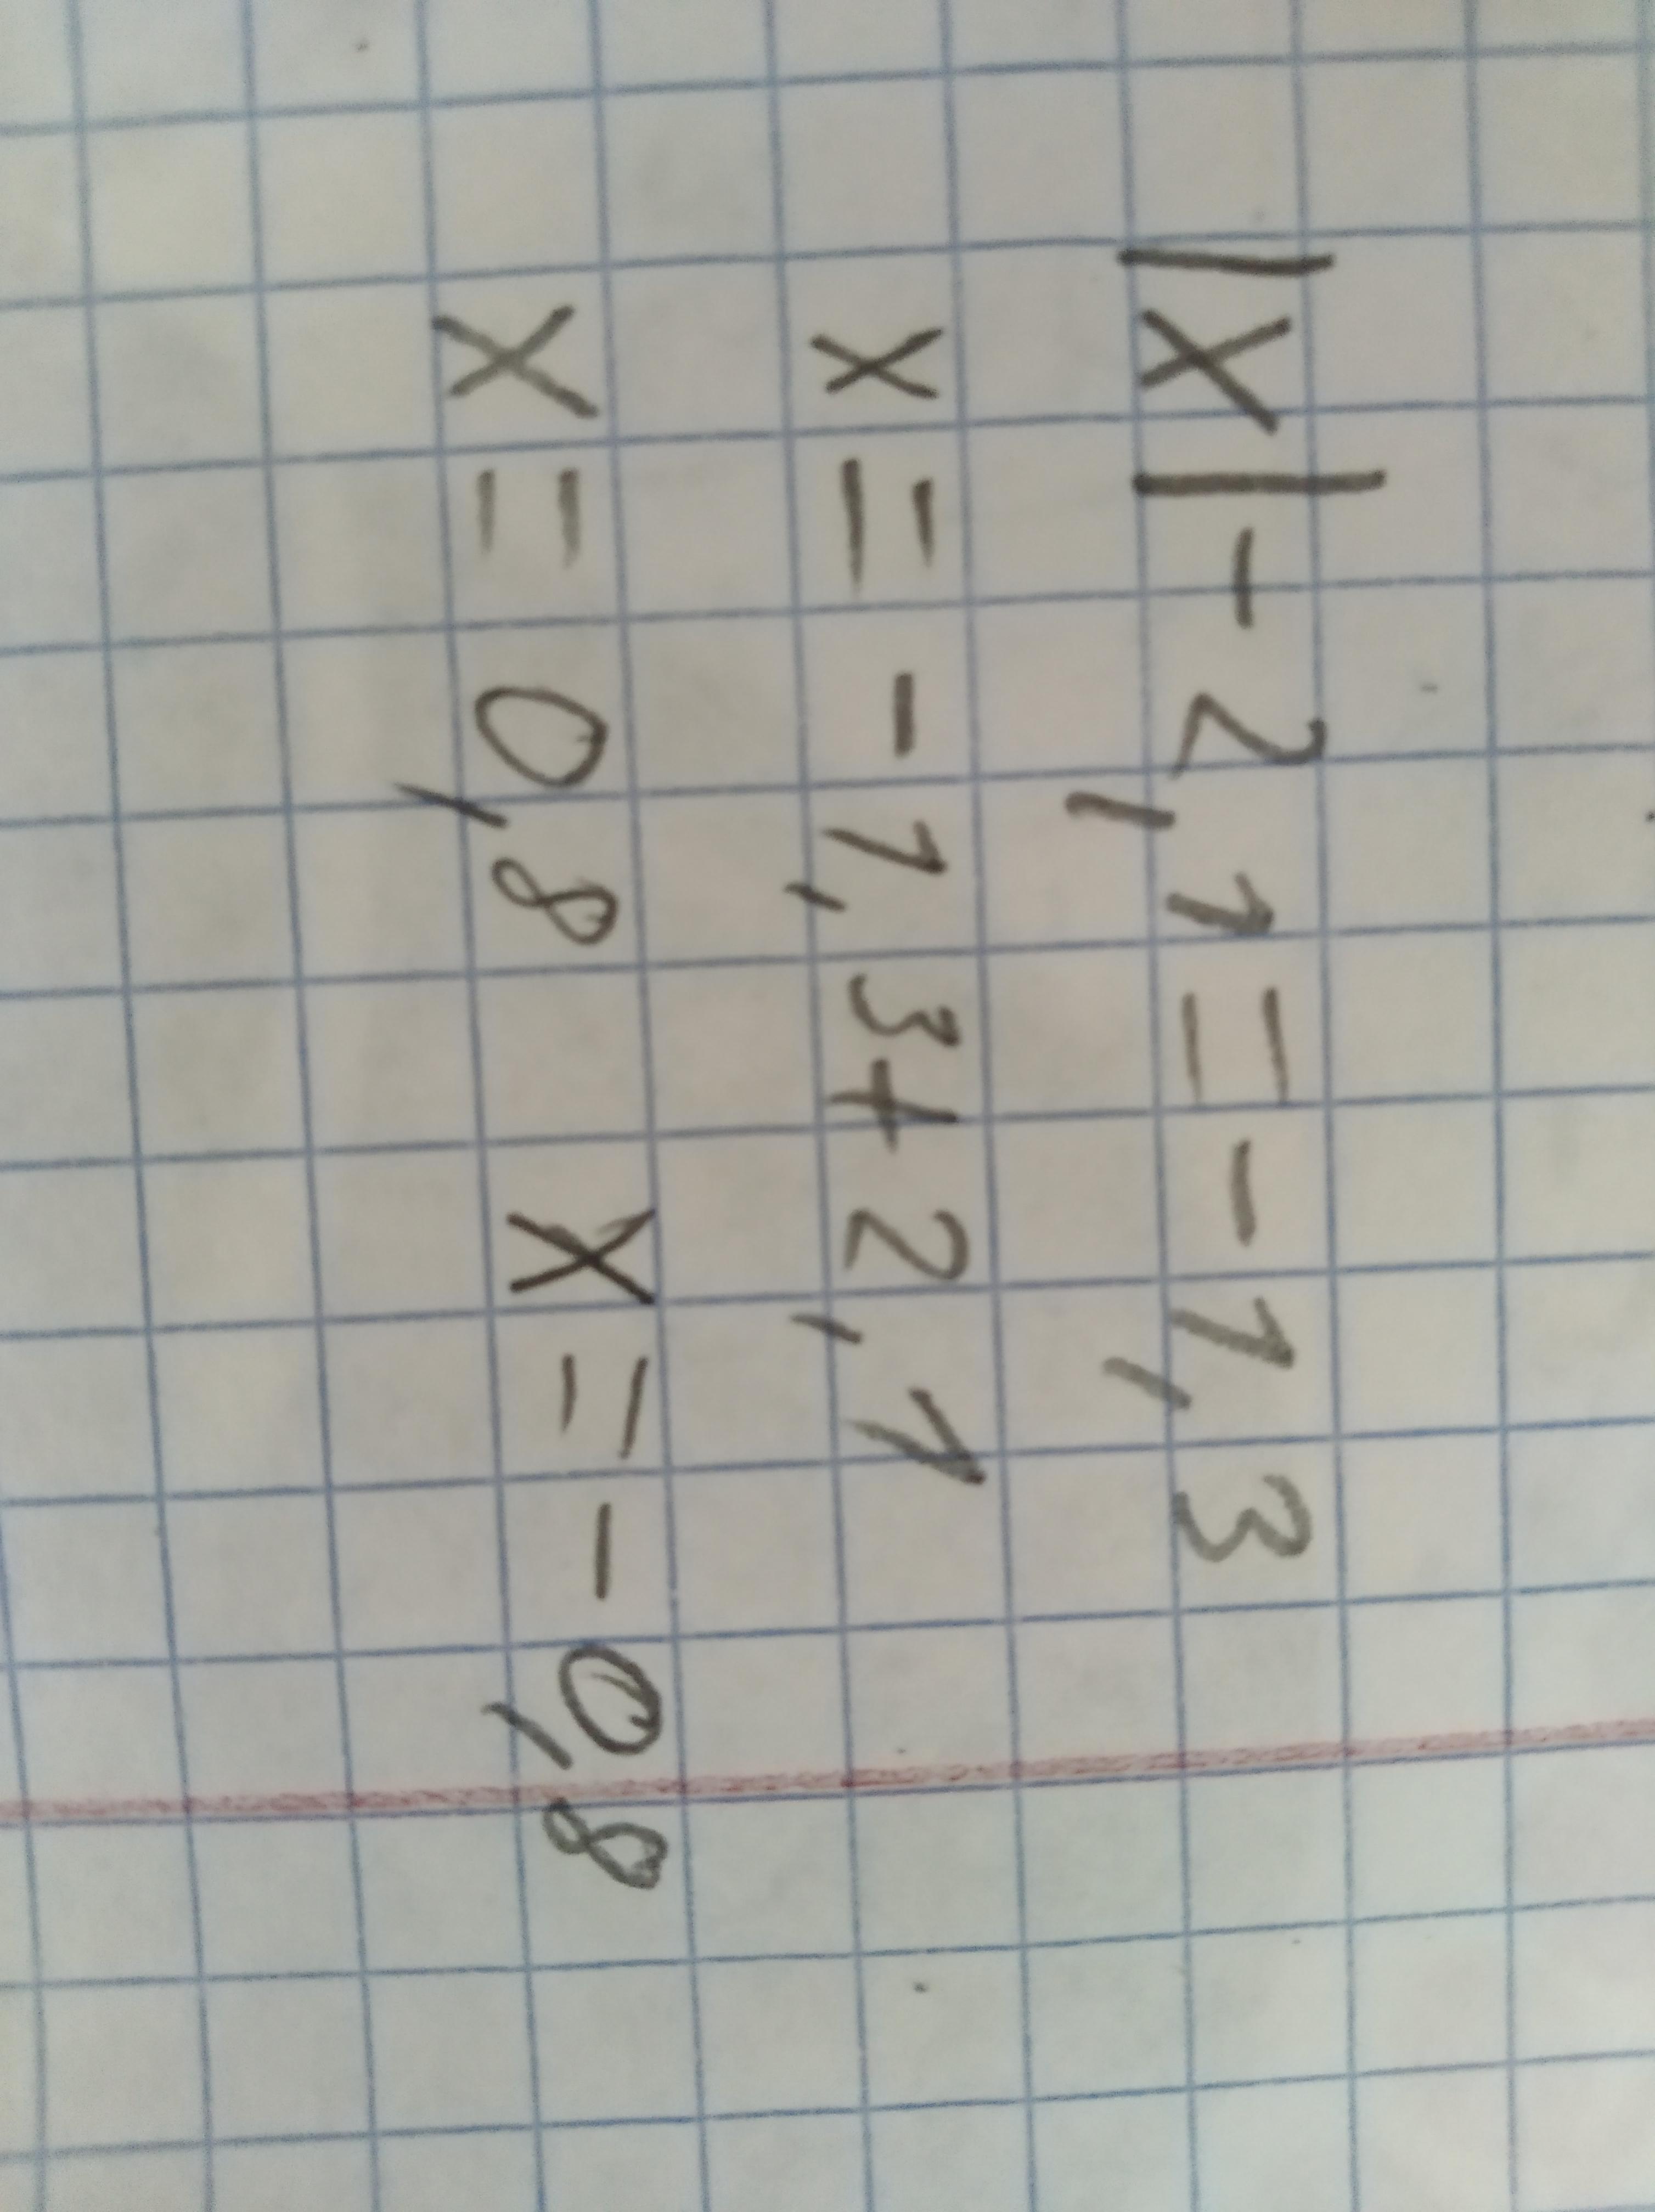 |x|-2,1=-1,3
x=-1,3+2,1
x=0,8 x=-0,8